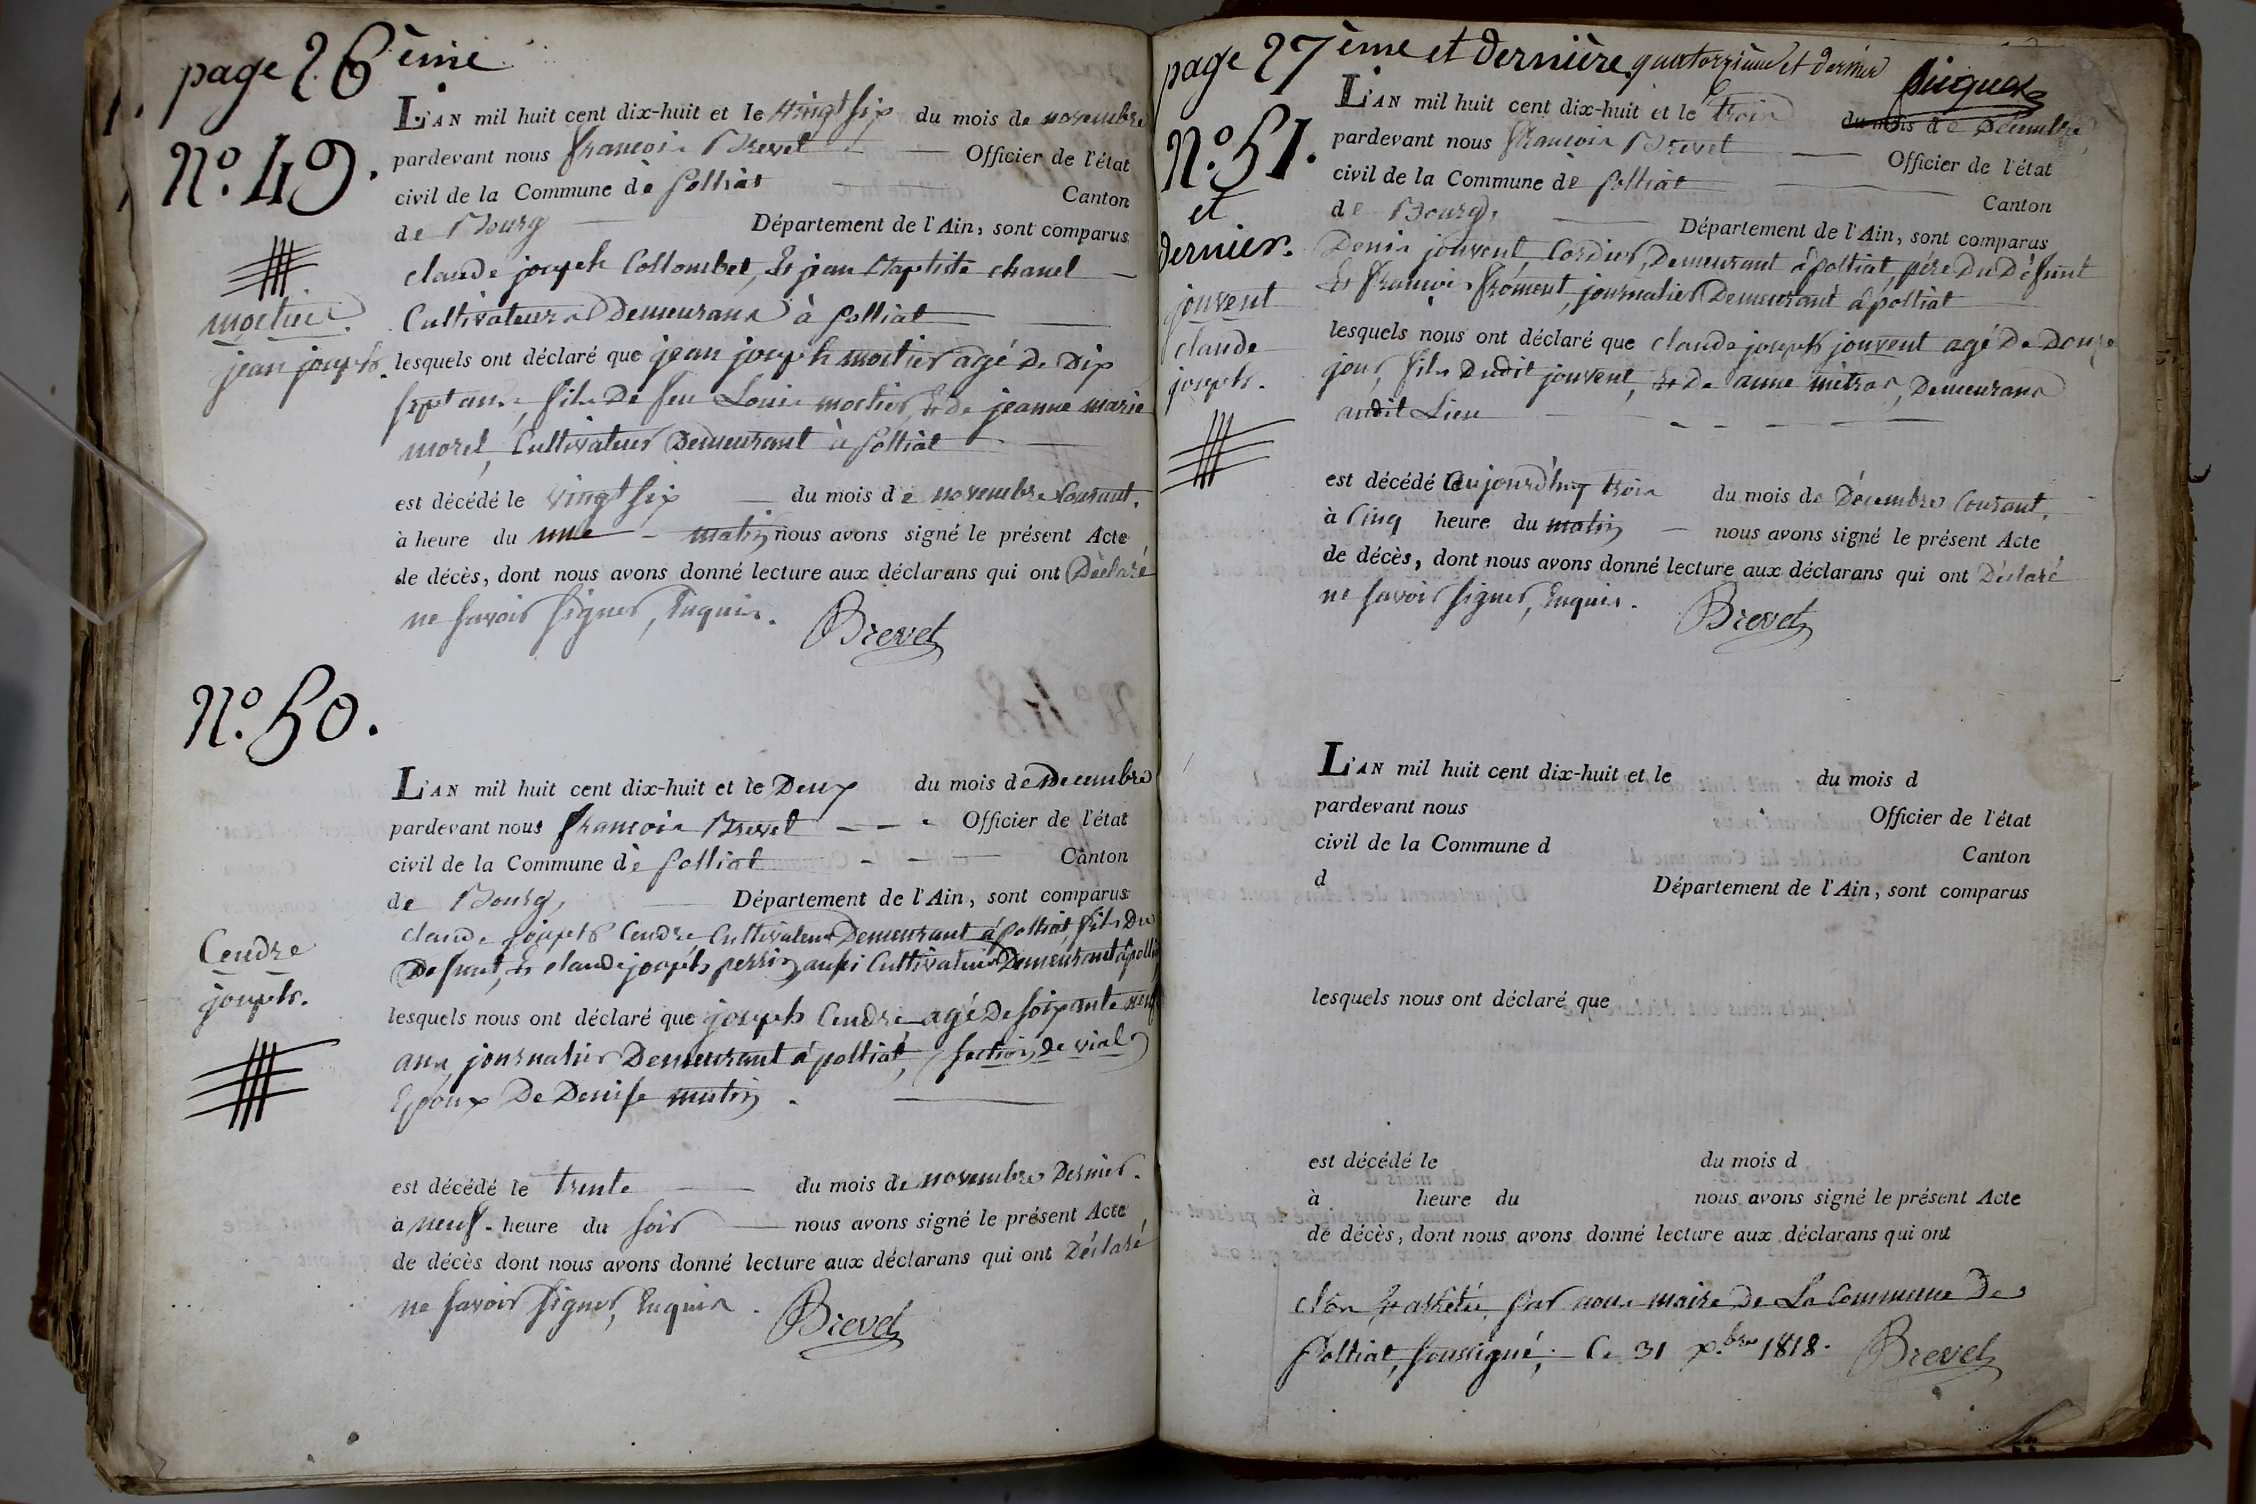 page 26 ème
N.º 49.
mortier
jean joseph.
L'AN mil huit cent dix-huit et le vingt six du mois de novembre
pardevant nous françois Brevet Officier de l'état
civil de la Commune de Polliat Canton
de Bourg Département de l'Ain, sont comparus
claude joseph Collombet, Et jean Baptiste chanel
Cultivateurs Demeurans à Polliat
lesquels ont déclaré que jean joseph mortier agé De Dix
sept ans, fils De feu Louis mortier, Et de jeanne marie
morel, Cultivateur Demeurant à Polliat
est décédé le vingt six du mois de novembre Courant.
à heure du une matin nous avons signé le présent Acte
de décès, dont nous avons donné lecture aux déclarans qui ont Déclaré
ne savoir signer, Enquis. Brevet
N.º 50.
Cendre
joseph.
L'AN mil huit cent dix-huit et le Deux du mois de Decembre
pardevant nous françois Brevet Officier de l'état
civil de la Commune de Polliat Canton
de Bourg, Département de l'Ain, sont comparus
claude joseph Cendre Cultivateur Demeurant à polliat, fils Du
Defunt, Et claude joseph perrin, aussi Cultivateur Demeurant à polliat
lesquels nous ont déclaré que joseph Cendre agé De soixante neuf
ans, journalier Demeurant à polliat, section de vial
Epoux De Denise mutin.
est décédé le trente du mois de novembre Dernier.
à neuf heure du soir nous avons signé le présent Acte
de décès dont nous avons donné lecture aux déclarans qui ont Déclaré
ne savoir signer, Enquis. Brevet
page 27 ème et dernière quatorzième et dernier
N.º 51.
et
dernier.
jouvent
claude
joseph.
L'AN mil huit cent dix-huit et le trois du mois de Décembre,
pardevant nous françois Brevet Officier de l'état
civil de la Commune de Polliat Canton
de Bourg, Département de l'Ain, sont comparus
Denis jouvent, Cordier, Demeurant à polliat, père Du Défunt
Et françois froment, journalier Demeurant à polliat
lesquels nous ont déclaré que claude joseph jouvent agé De Douze
jour, fils Dudit jouvent, Et De anne mètras, Demeurans
audit Lieu
est décédé le aujourd'huy trois du mois de Décembre Courant.
à Cinq heure du matin nous avons signé le présent Acte
de décès, dont nous avons donné lecture aux déclarans qui ont Déclaré
ne savoir signer, Enquis. Brevet
L'AN mil huit cent dix-huit et le du mois d
pardevant nous Officier de l'état
civil de la Commune d Canton
d Département de l'Ain, sont comparus
lesquels nous ont déclaré que
est décédé le du mois d
à heure du nous avons signé le présent Acte
de décès, dont nous avons donné lecture aux déclarans qui ont
clôs Et arrêté, Par nous maire De La Commune De
Polliat, soussigné, Ce 31 x.bre 1818. Brevet